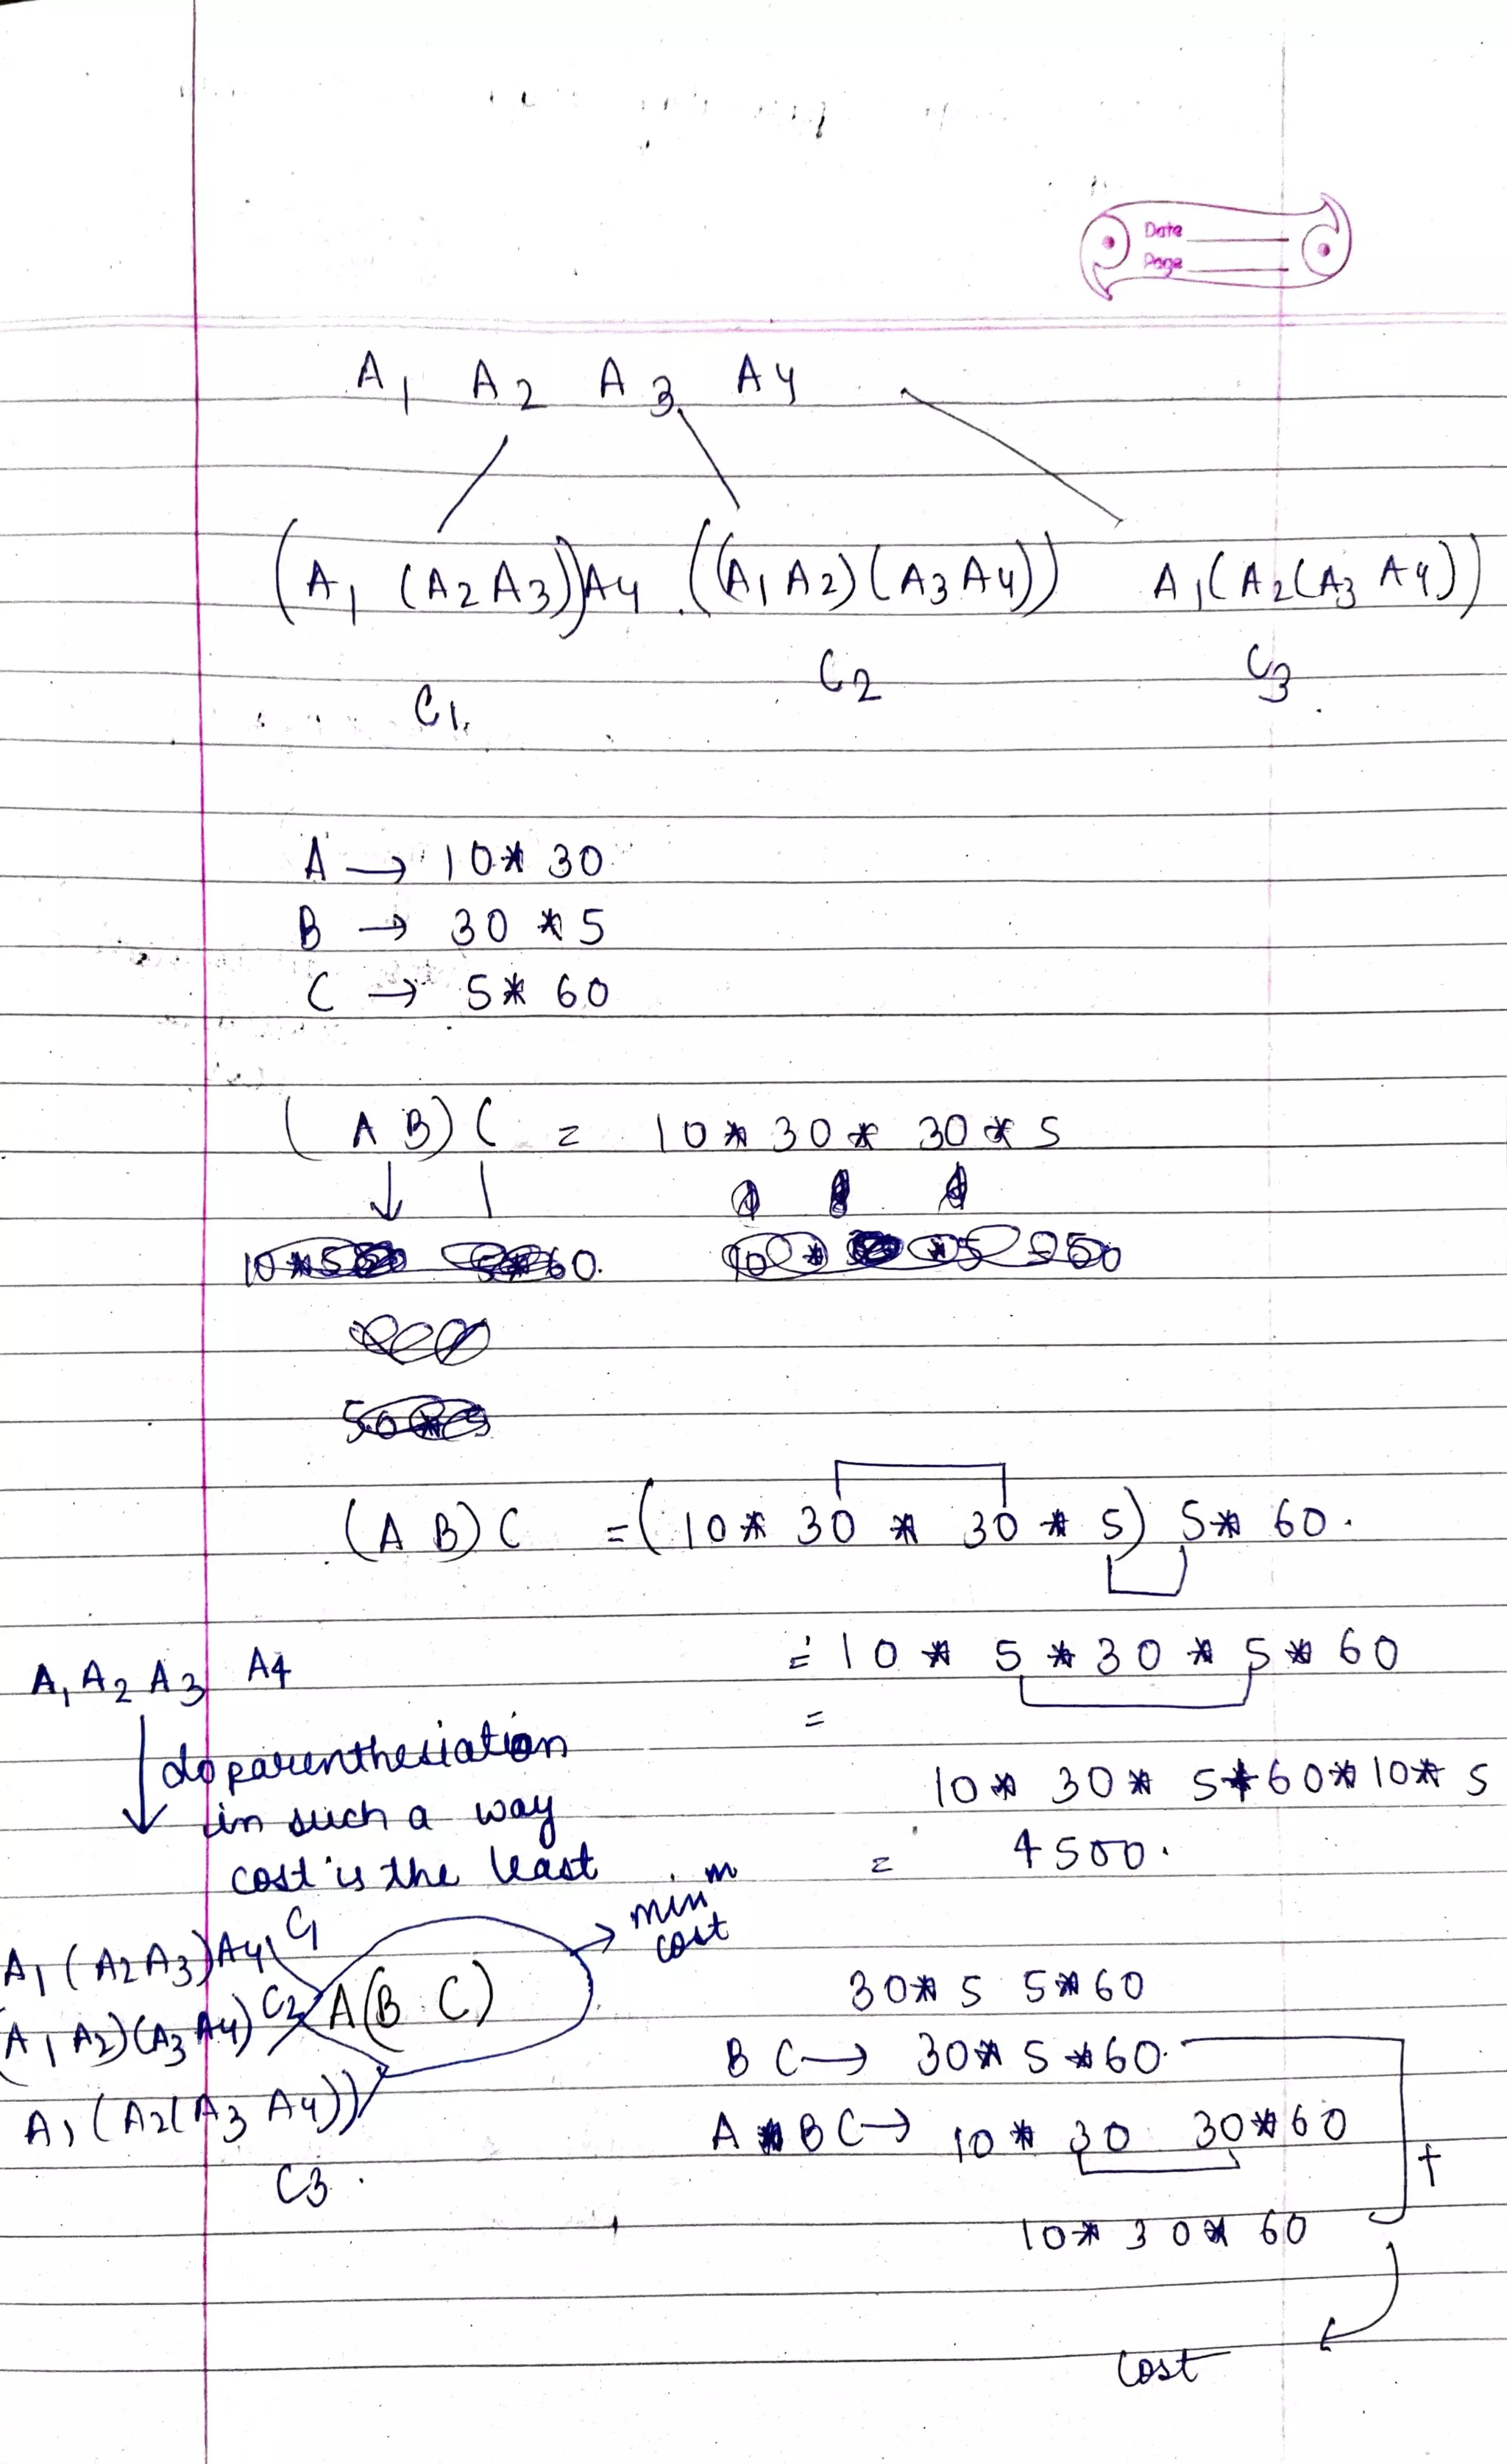 Date
Page
A1 A2 A3 A4
(A1 (A2 A3))A4 ((A1 A2)(A3 A4)) A1(A2(A3 A4))
C1 C2 C3
A → 10* 30
B → 30 * 5
C → 5* 60
(A B) C = 10 * 30 * 30 * 5
(A B) C = (10* 30 * 30 * 5) 5* 60.
= 10 * 5 * 30 * 5 * 60
=
10 * 30 * 5+60*10* 5
= 4500.
A1 A2 A3 A4
do parenthesiation
in such a way
cost is the least
min^m
cost
A1 (A2 A3)A4 C1
(A1 A2)(A3 A4) C2 A(B C)
A1 (A2(A3 A4))
C3.
30* 5 5*60
B C → 30* 5 *60.
A * B C → 10 * 30 30*60
+
10* 30* 60
cost